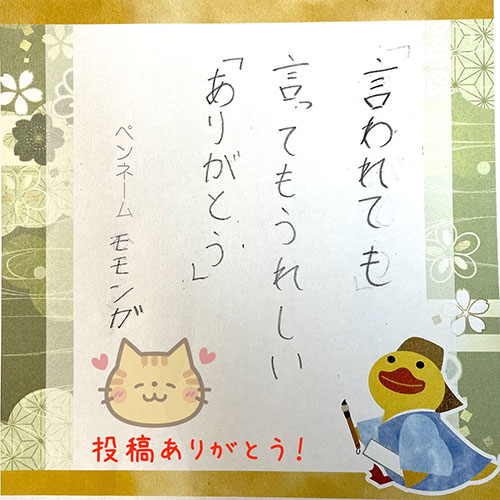 「言われても
言ってもうれしい
「ありがとう」
ペンネーム モモンガ
投稿ありがとう！